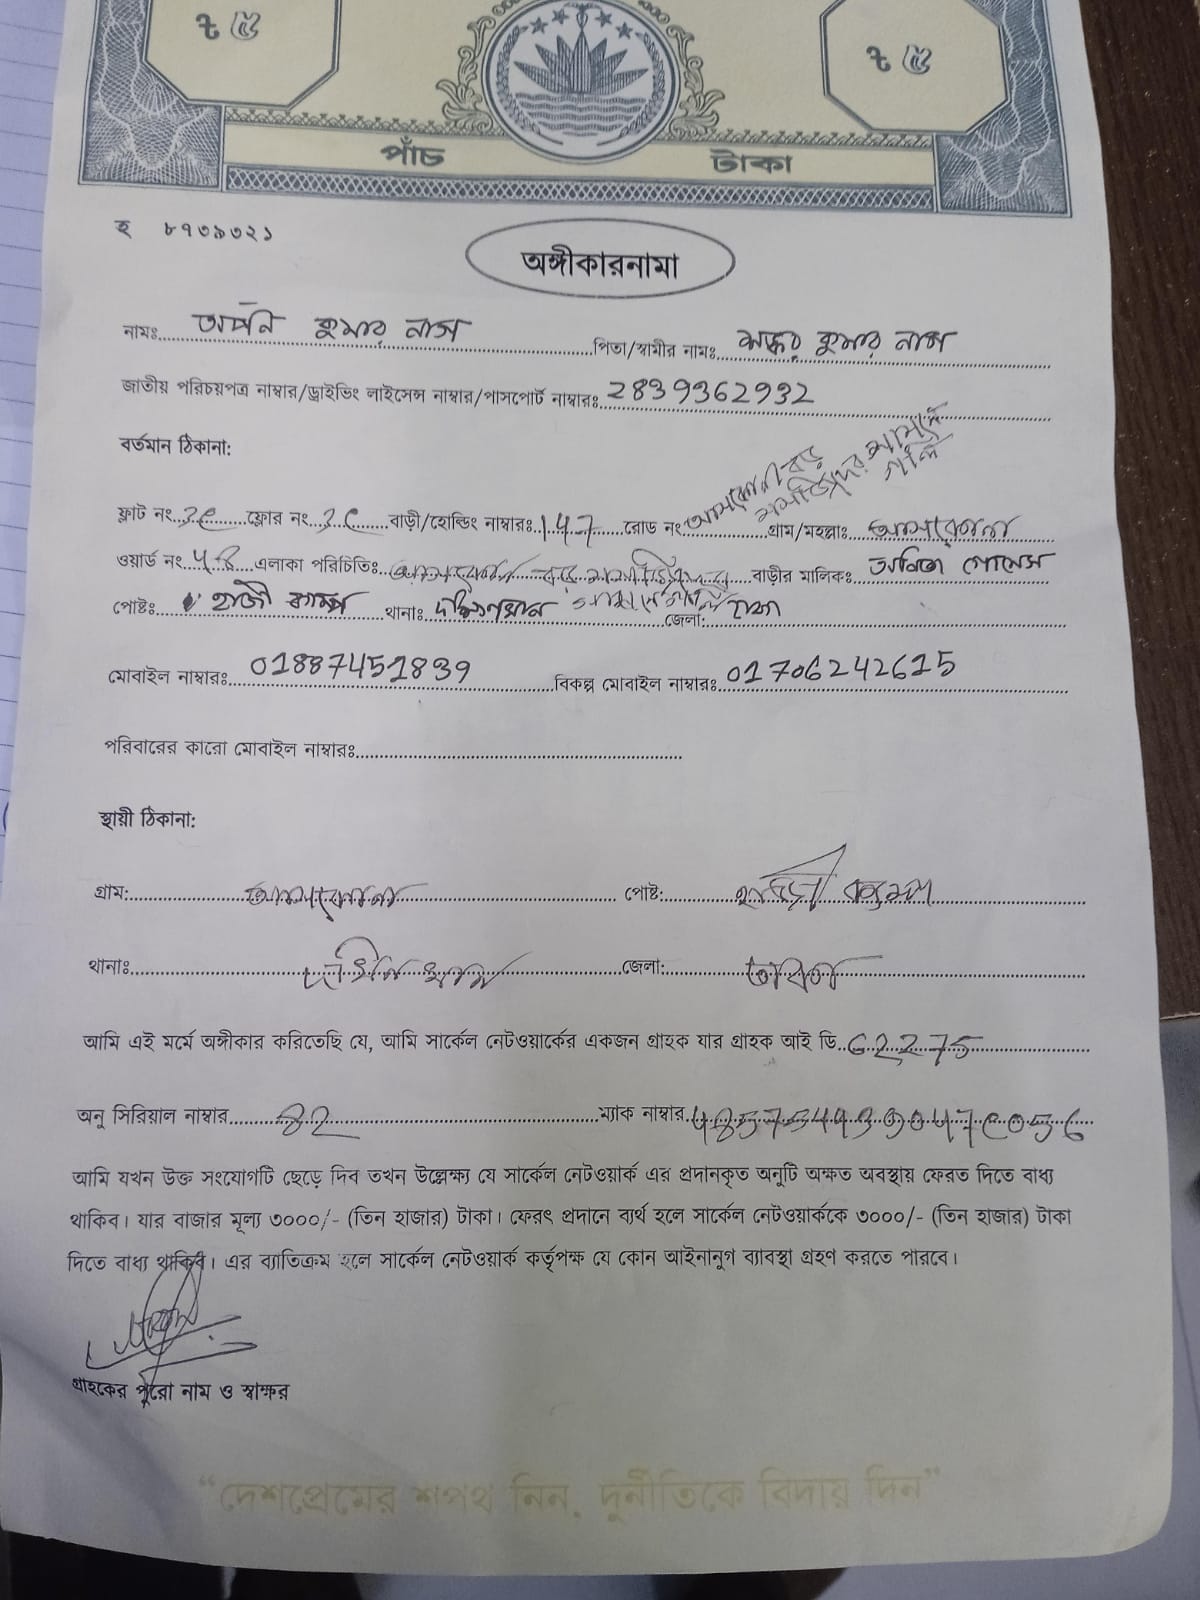 ৳ ৫ ৳ ৫
পাঁচ টাকা
হ ৮৭৩৯৩২১
অঙ্গীকারনামা
নামঃ কুমার দাস পিতা/স্বামীর নামঃ শঙ্কর কুমার দাস
জাতীয় পরিচয়পত্র নাম্বার/ড্রাইভিং লাইসেন্স নাম্বার/পাসপোর্ট নাম্বারঃ 2839362932
বর্তমান ঠিকানা:
ফ্লাট নং ফ্লোর নং বাড়ী/হোল্ডিং নাম্বারঃ 147 রোড নং আশকোনা বড় মসজিদের সামনে গলি গ্রাম/মহল্লাঃ আশকোনা
ওয়ার্ড নং এলাকা পরিচিতিঃ আশকোনা বড় মসজিদের সামনে গলি বাড়ীর মালিকঃ
পোষ্টঃ হাজী ক্যাম্প থানাঃ দক্ষিণখান জেলা: ঢাকা
মোবাইল নাম্বারঃ 01887451839 বিকল্প মোবাইল নাম্বারঃ 01706242615
পরিবারের কারো মোবাইল নাম্বারঃ
স্থায়ী ঠিকানা:
গ্রাম: আশকোনা পোষ্ট: হাজী ক্যাম্প
থানাঃ দক্ষিনখান জেলা: ঢাকা
আমি এই মর্মে অঙ্গীকার করিতেছি যে, আমি সার্কেল নেটওয়ার্কের একজন গ্রাহক যার গ্রাহক আই ডি 62275
অনু সিরিয়াল নাম্বার 82 ম্যাক নাম্বার
আমি যখন উক্ত সংযোগটি ছেড়ে দিব তখন উল্লেক্ষ্য যে সার্কেল নেটওয়ার্ক এর প্রদানকৃত অনুটি অক্ষত অবস্থায় ফেরত দিতে বাধ্য
থাকিব। যার বাজার মূল্য ৩০০০/- (তিন হাজার) টাকা। ফেরৎ প্রদানে ব্যর্থ হলে সার্কেল নেটওয়ার্ককে ৩০০০/- (তিন হাজার) টাকা
দিতে বাধ্য থাকিব। এর ব্যাতিক্রম হলে সার্কেল নেটওয়ার্ক কর্তৃপক্ষ যে কোন আইনানুগ ব্যাবস্থা গ্রহণ করতে পারবে।
গ্রাহকের পুরো নাম ও স্বাক্ষর
“দেশপ্রেমের শপথ নিন, দুর্নীতিকে বিদায় দিন”